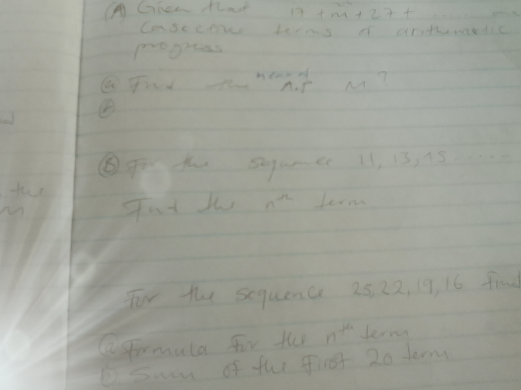 (A) Given that 17 + m + 27 +
consecutive terms of arithmetic
progress
(a) Find the M?
(b)
(B) For the sequence 11, 13, 15 ......
Find the nth term
For the sequence 25, 22, 19, 16 find
(a) Formula for the nth term
(b) Sum of the First 20 term